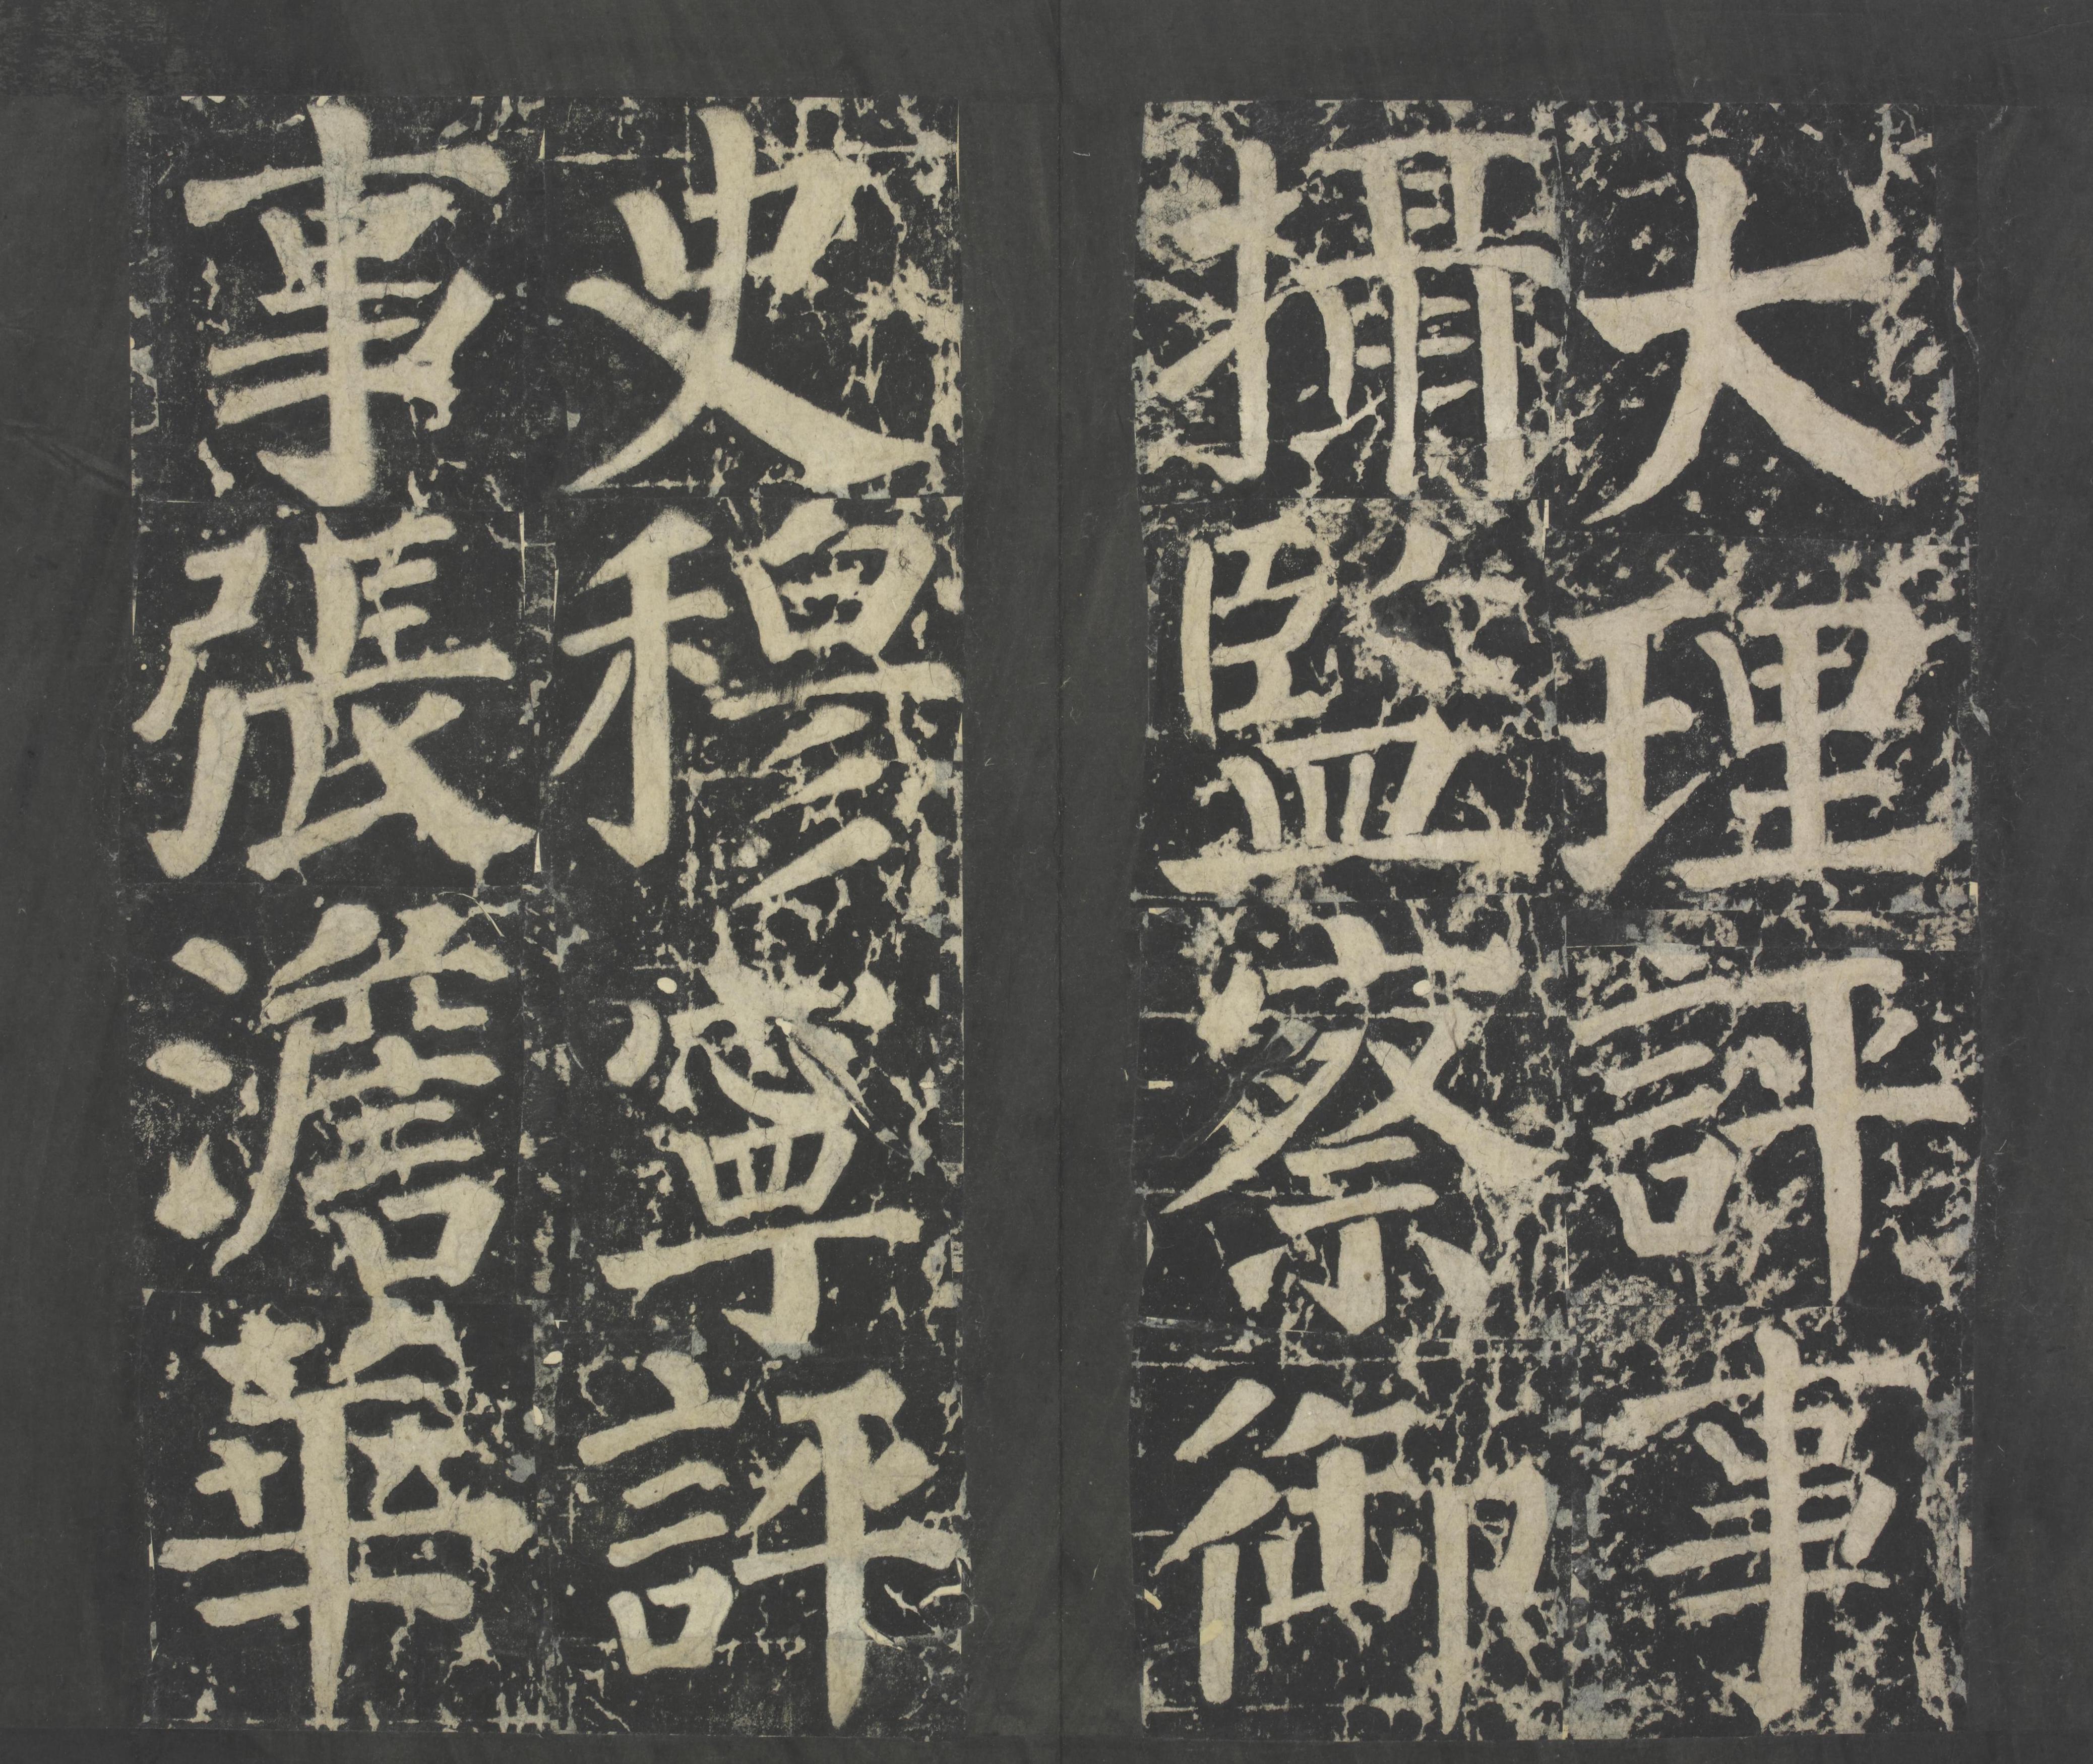 大理評事
攝監察御
史穆寧評
事張澹華